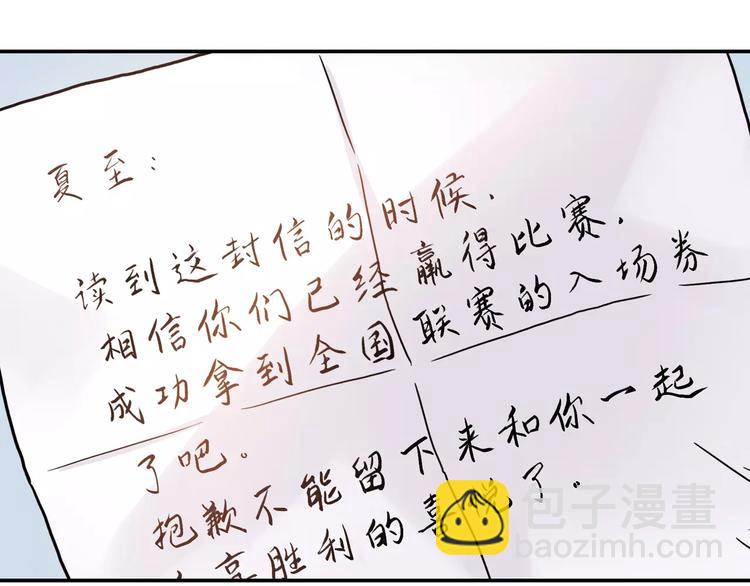 夏至：
读到这封信的时候，
相信你们已经赢得比赛，
成功拿到全国联赛的入场券
了吧。
抱歉不能留下来和你一起
享胜利的喜悦了。
包子漫畫
baozimh.com